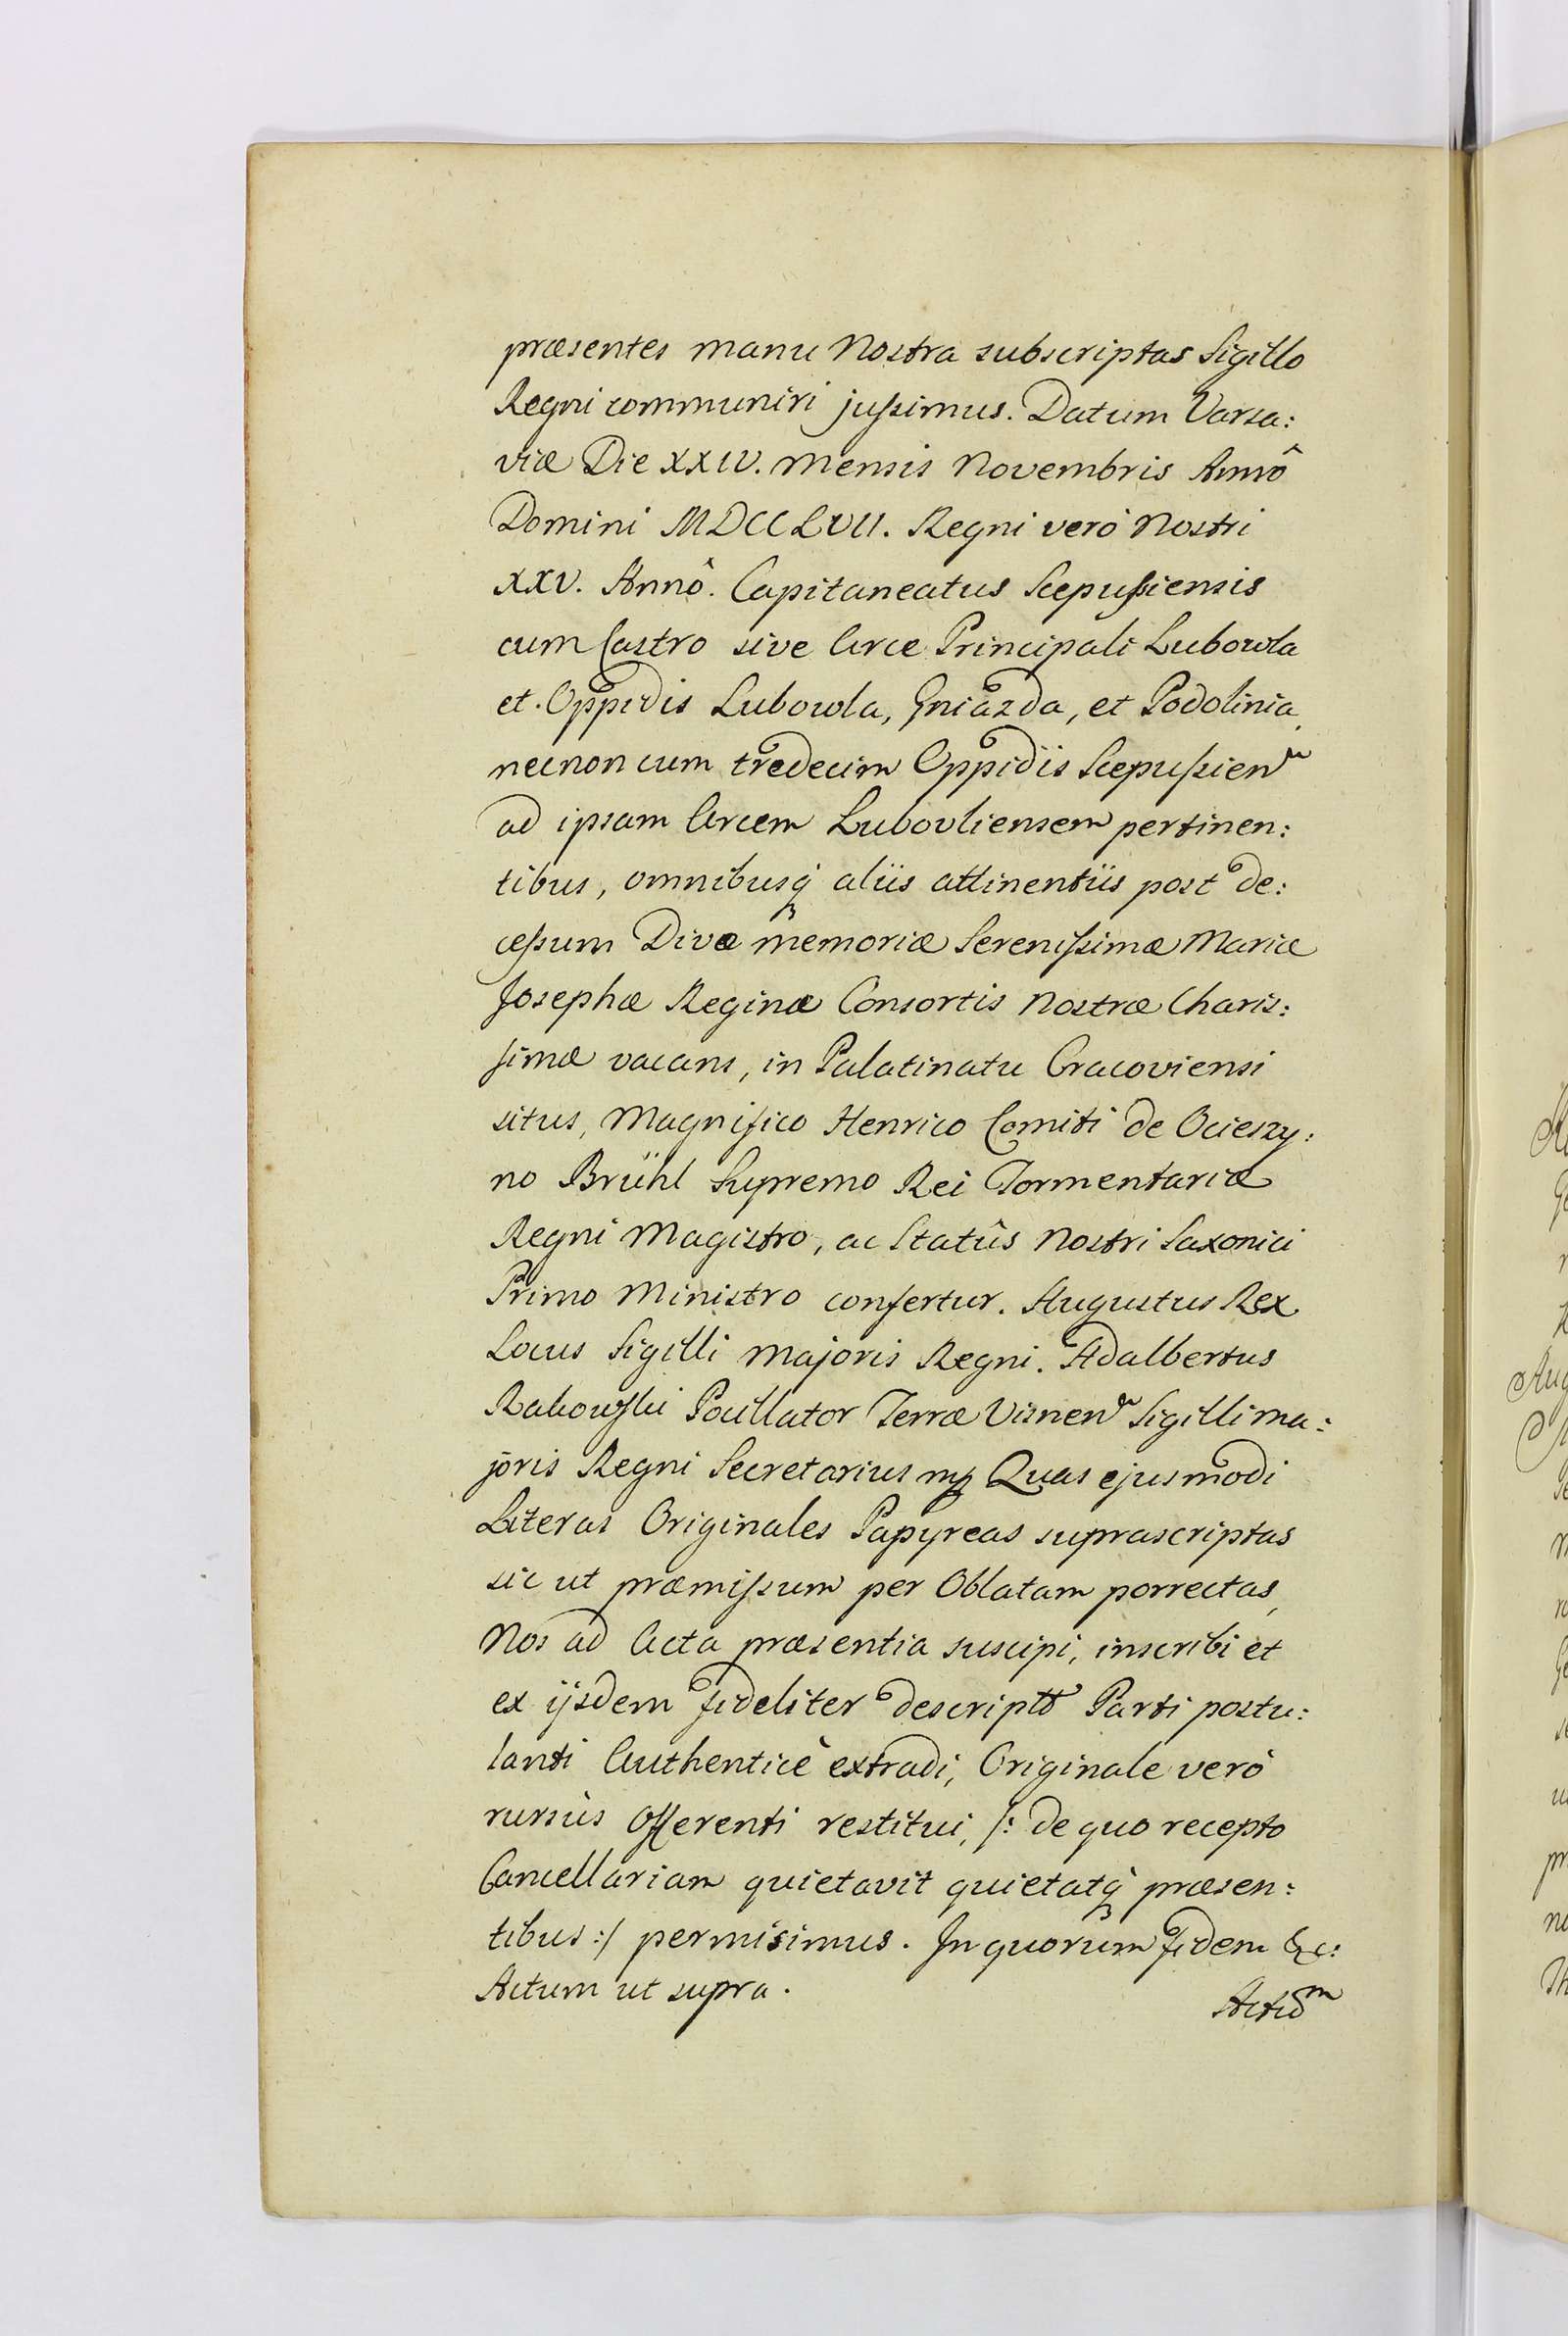 præsentes manu Nostra subscriptas Sigillo
Regni communiri jussimus. Datum Varsa:
viæ Die XXIV. Mensis Novembris Annô
Domini MDCCLVII. Regni verò Nostri
XXV. Annô. Capitaneatus Scepusiensis
cum Castro sive Arce Principali Lubowla
et Oppidis Lubowla, Gniazda, et Podolinia,
necnon cum tredecim Oppidis Scepusien
ad ipsam Arcem Lubovliensem pertinen:
tibus, omnibusq̀ aliis attinentiis post de:
cessum Divæ memoriæ Serenissimæ Mariæ
Josephæ Reginæ Consortis Nostræ Charis:
simæ vacans, in Palatinatu Cracoviensi
situs, Magnifico Henrico Comiti de Ocieszy:
no Brühl Supremo Rei Tormentariæ
Regni Magistro, ac Statûs Nostri Saxonici
Primo Ministro confertur. Augustus Rex
Locus Sigilli Majoris Regni. Adalbertus
Rakowski Pocillator Terræ Visnen Sigilli ma:
joris Regni Secretarius mp Quas ejusmodi
Literas Originales Papyreas suprascriptas
sic ut præmissum per Oblatam porrectas,
Nos ad Acta præsentia suscipi, inscribi et
ex ijsdem fideliter descriptô Parti postu:
lanti Authenticè extradi, Originale verò
rursùs Offerenti restitui, /: de quo recepto
Cancellariam quietavit quietatq̀ præsen:
tibus :/ permisimus. In quorum fidem &c:
Actum ut supra.